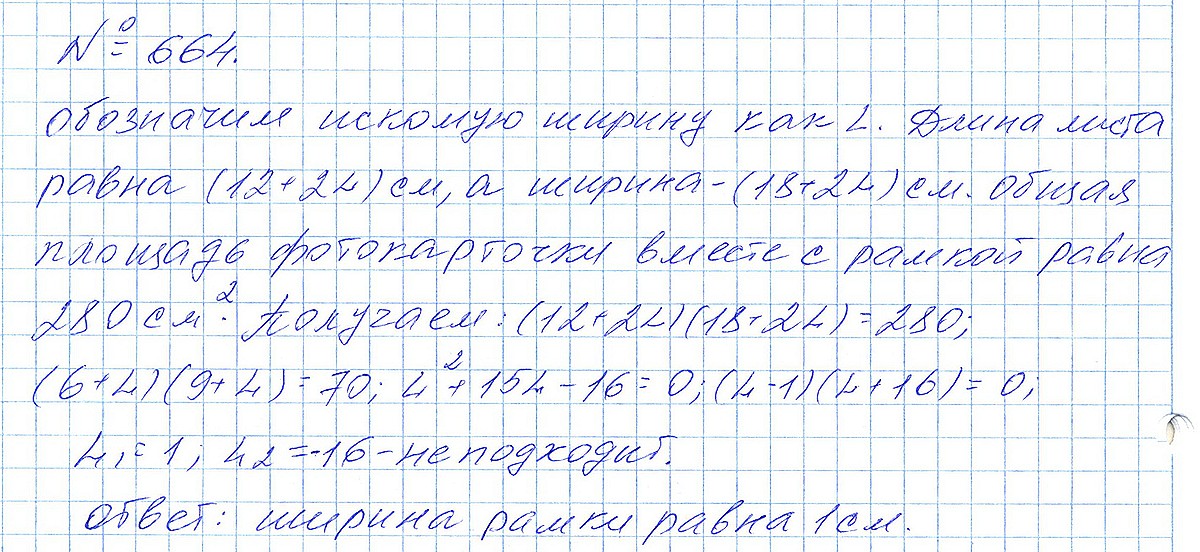 № 664.
обозначим искомую ширину как L. Длина листа
равна (12+2L) см, а ширина - (18+2L) см. общая
площадь фотокарточки вместе с рамкой равна
280 см². Получаем: (12+2L)(18+2L)=280;
(6+L)(9+L)=70; L²+15L-16=0; (L-1)(L+16)=0;
L₁=1; L₂=-16 - не подходит.
ответ: ширина рамки равна 1 см.